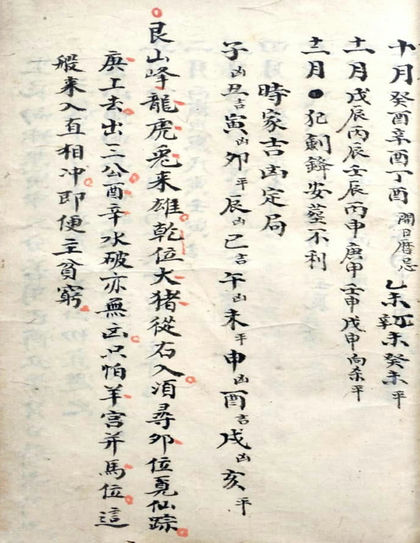 十月癸酉辛酉丁酉開日曆忌乙未辛未癸未平
十一月戊辰丙辰壬辰丙申庚申壬申戊申向煞平
十二月犯劍鋒安塟不利
時家吉凶定局
子凶丑吉寅凶卯平辰凶巳吉午凶未平申凶酉吉戌凶亥平
艮山峰龍虎兎来雄乾位大猪從右入湏尋夘位覓仙踪
庚上去出三公酉辛水破亦無凶只怕羊宮并馬位這
般来入直相冲即便主貧窮